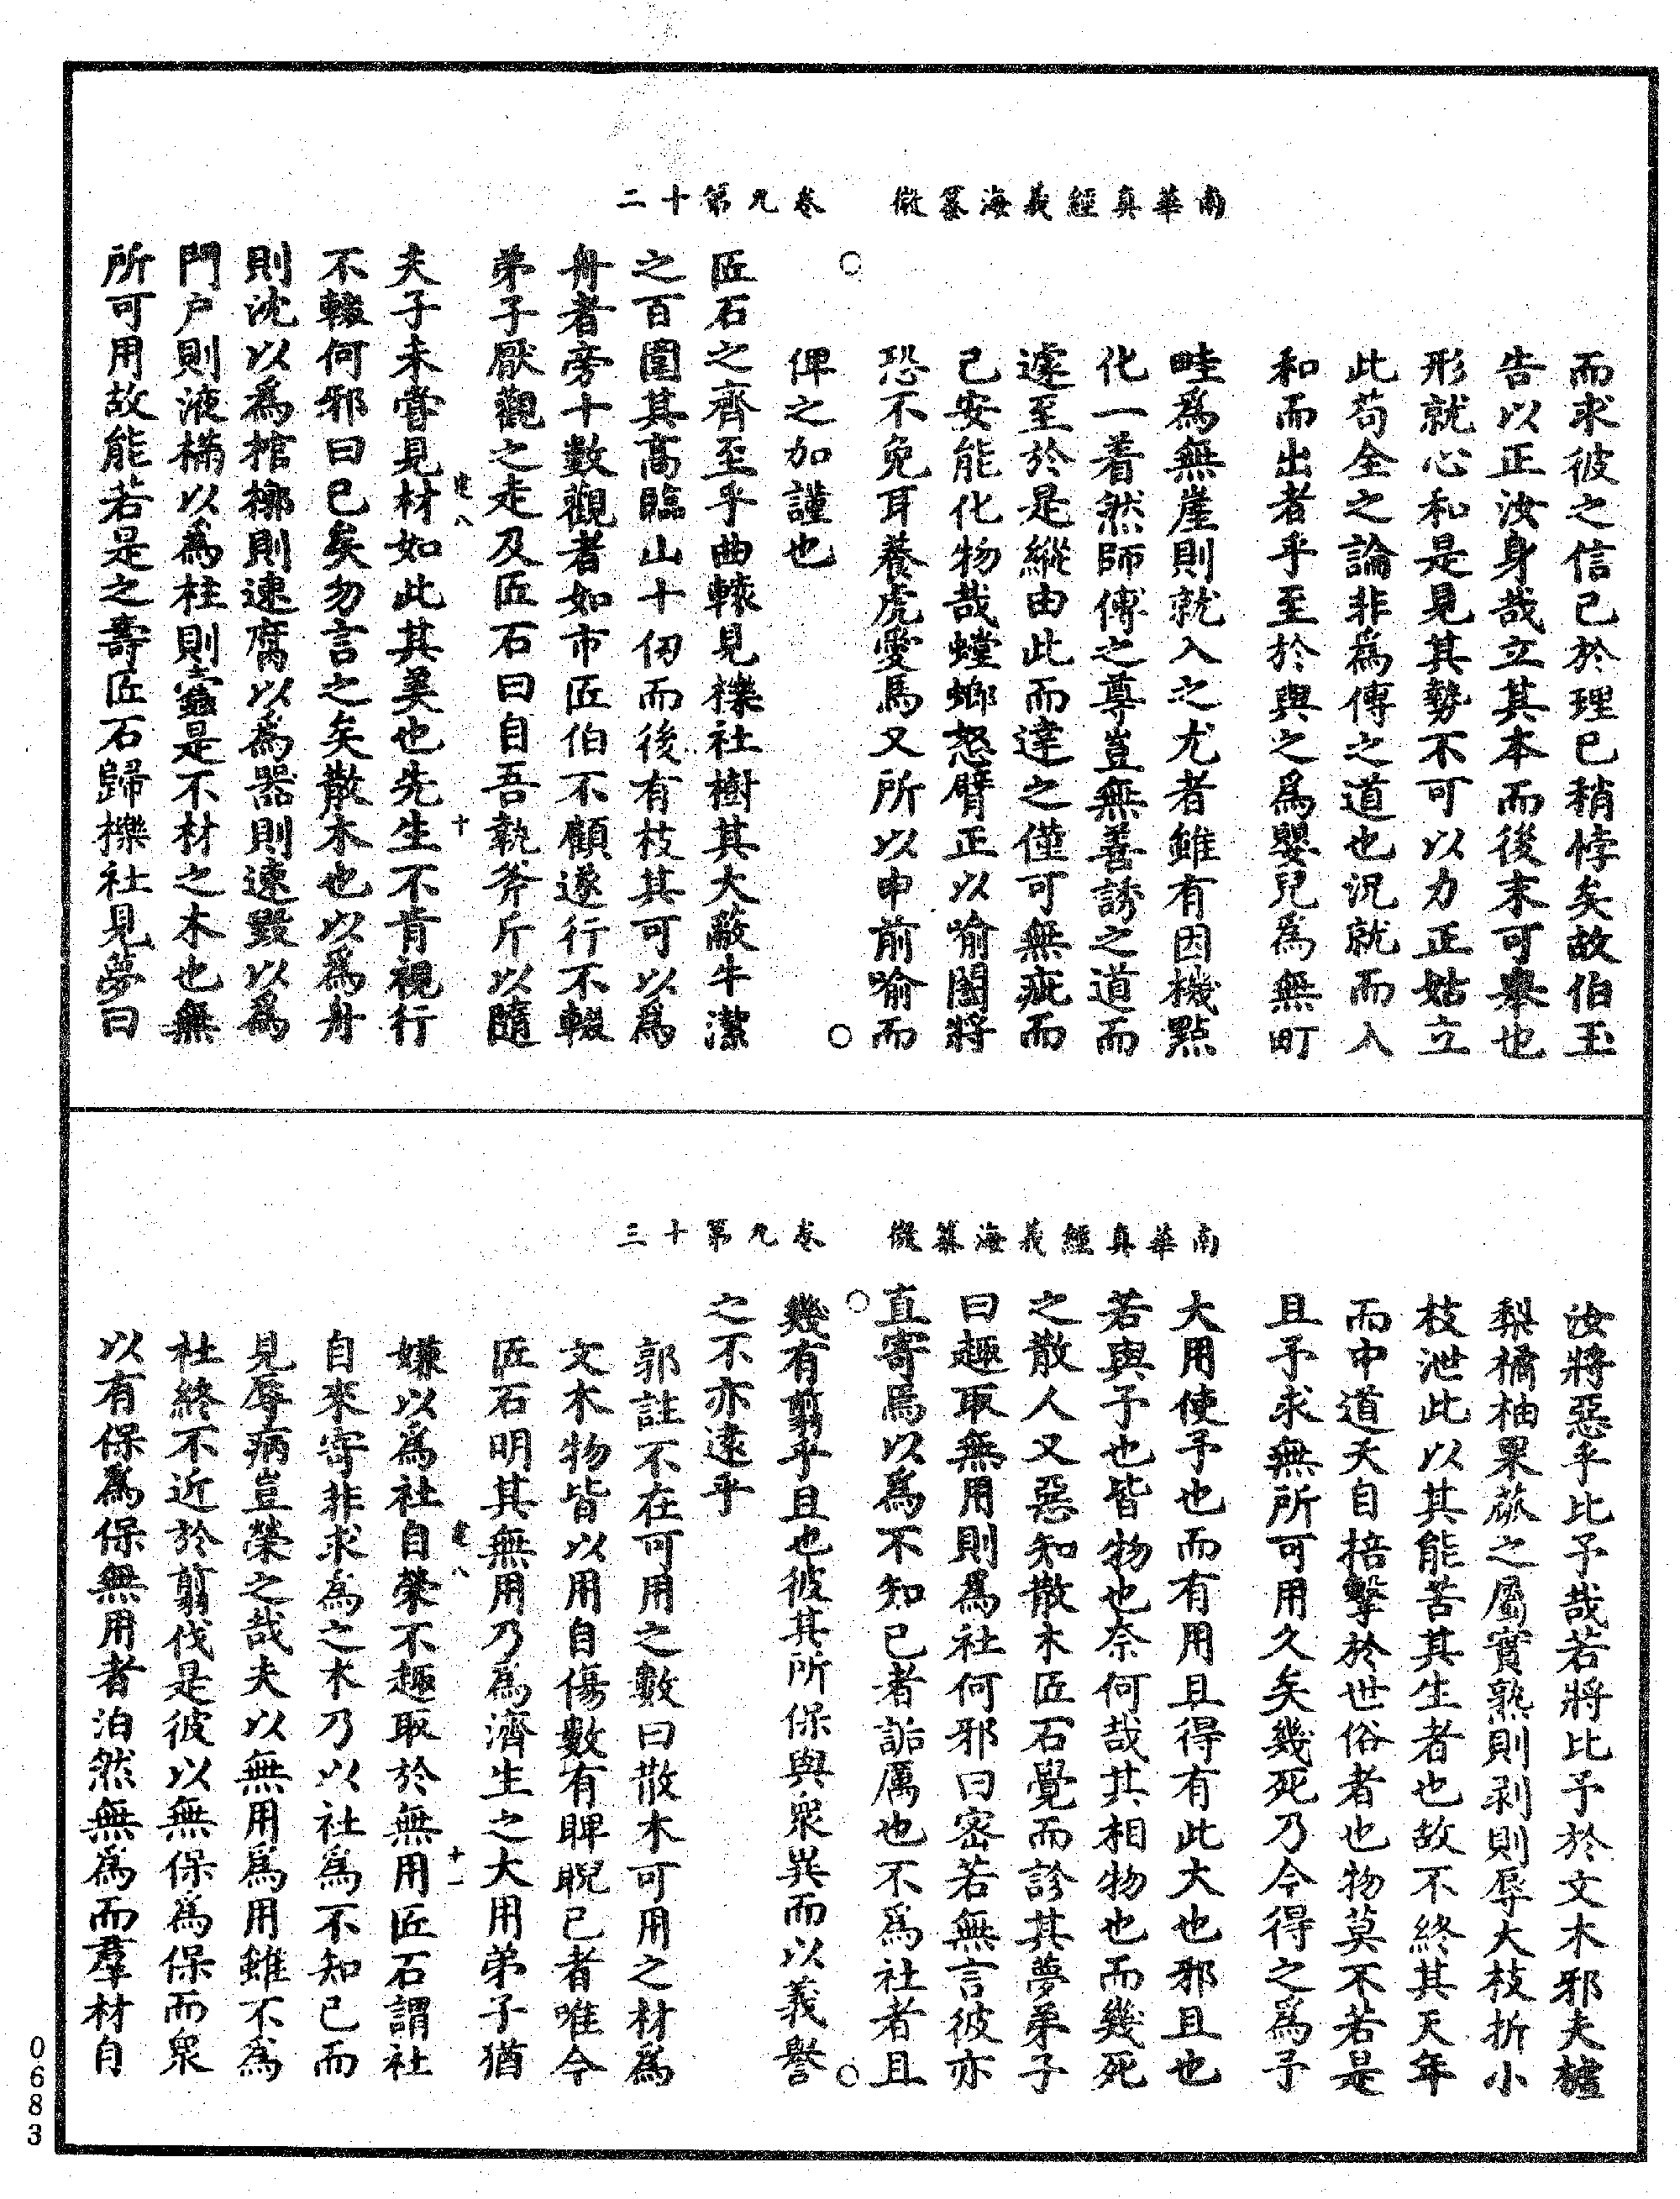 南華真經義海纂微　卷九第十二
而求彼之信己於理已稍悖矣故伯玉
告以正汝身哉立其本而後末可舉也
形就心和是見其勢不可以力正姑立
此苟全之論非為傅之道也況就而入
和而出者乎至於與之為嬰兒為無町
畦為無崖則就入之尤者雖有因機點
化一着然師傅之尊豈無善誘之道而
遽至於是縱由此而達之僅可無疵而
己安能化物哉螳螂怒臂正以喻闔將
恐不免耳養虎愛馬又所以申前喻而
俾之加謹也
匠石之齊至乎曲轅見櫟社樹其大蔽牛潔
之百圍其高臨山十仞而後有枝其可以為
舟者旁十數觀者如市匠伯不顧遂行不輟
弟子厭觀之走及匠石曰自吾執斧斤以隨
夫子未嘗見材如此其美也先生不肯視行
不輟何邪曰已矣勿言之矣散木也以為舟
則沈以為棺槨則速腐以為器則速毀以為
門户則液樠以為柱則蠹是不材之木也無
所可用故能若是之壽匠石歸櫟社見夢曰
建八　十
南華真經義海纂微　卷九第十三
汝將惡乎比予哉若將比予於文木邪夫樝
梨橘柚果蓏之屬實熟則剥則辱大枝折小
枝泄此以其能苦其生者也故不終其天年
而中道夭自掊擊於世俗者也物莫不若是
且予求無所可用久矣幾死乃今得之為予
大用使予也而有用且得有此大也邪且也
若與予也皆物也奈何哉其相物也而幾死
之散人又惡知散木匠石覺而診其夢弟子
曰趣取無用則為社何邪曰密若無言彼亦
直寄焉以為不知己者詬厲也不為社者且
幾有翦乎且也彼其所保與衆異而以義譽
之不亦遠乎
郭註不在可用之數曰散木可用之材為
文木物皆以用自傷數有睥睨己者唯今
匠石明其無用乃為濟生之大用弟子猶
嫌以為社自榮不趣取於無用匠石謂社
自來寄非求為之木乃以社為不知己而
見辱病豈榮之哉夫以無用為用雖不為
社終不近於翦伐是彼以無保為保而衆
以有保為保無用者泊然無為而羣材自
建八　十一
0683